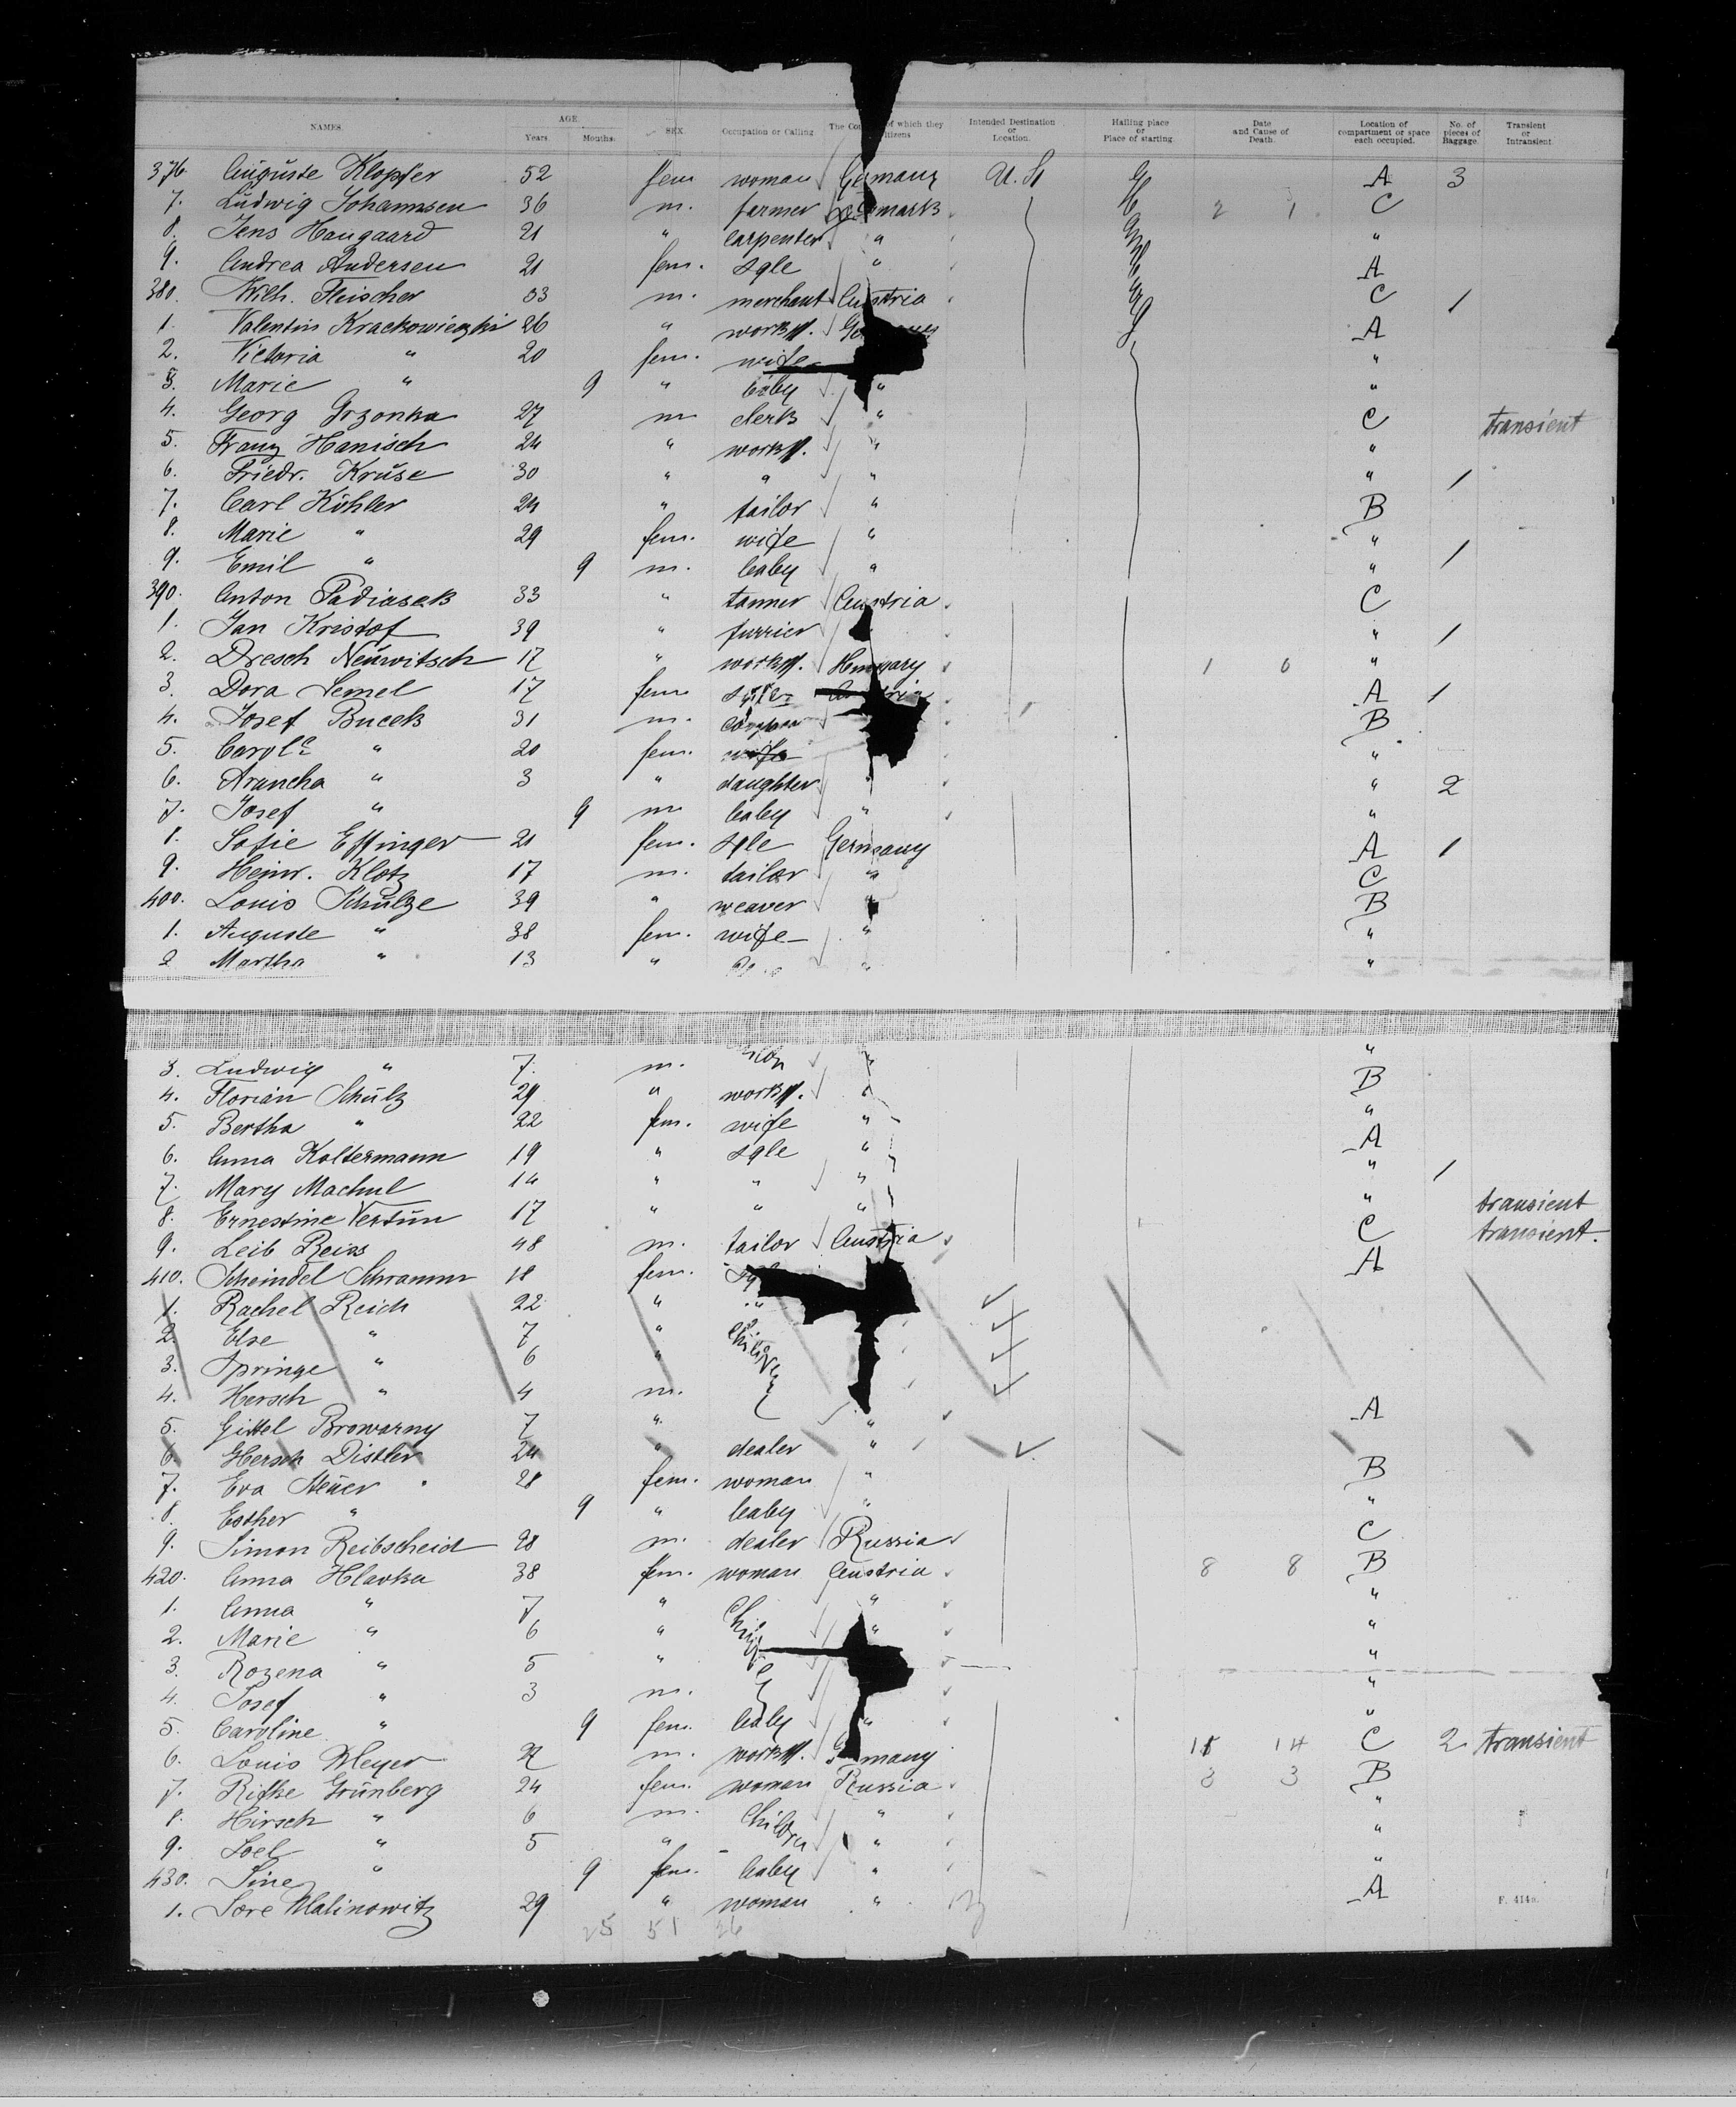 NAMES. AGE. Years. Months. SEX. Occupation or Calling The Cou of which they itizens Intended Destination or Location. Hailing place or Place of starting. Date and Cause of Death. Location of compartment or space each occupied. No. of pieces of Baggage. Transient or Intransient.
376 Auguste Klopfer 52 fem woman Germany U. St A 3
7. Ludwig Johannsen 36 m. farmer Denmark 2 1 C
8. Jens Haugaard 21 " carpenter " "
9. Andrea Andersen 21 fem. sgle " A
380. Wilh. Fleischer 53 m. merchant Austria C 1
1. Valentin Krackowieczki 26 " A
2. Victoria " 20 fem. wife "
3. Marie " 9 " baby " "
4. Georg Grzonka 27 m clerk " C transient
5. Franz Hanisch 24 " " "
6. Friedr. Kruse 30 " " " " 1
7. Carl Köhler 24 " tailor " B
8. Marie " 29 fem. wife " "
9. Emil " 9 m. baby " " 1
390. Anton Padiasek 33 " tanner Austria C
1. Jan Kristof 39 " furrier " 1
2. Dresch Neuwitsch 17 " Hungary 1 0 "
3. Dora Semel 17 fem A 1
4. Josef Bucek 31 m. B
5. Carol " 20 fem. wife "
6. Arancha " 3 " daughter " " 2
7. Josef " 9 m baby " "
8. Sofie Effinger 21 fem. sgle Germany A 1
9. Heinr. Klotz 17 m. tailor " C
400. Louis Schulze 39 " weaver B
1. Auguste " 38 fem. wife " "
2 Martha " 13 " " "
3. Ludwig " 7. m. " "
4. Florian Schulz 29 " " B
5. Bertha " 22 fem. wife " "
6. Anna Koltermann 19 " sgle " A
7. Mary Machul 14 " " " " 1
8. Ernestine Vertun 17 " " " " transient
9. Leib Reiss 48 m. tailor Austria C transient.
410. Scheindel Schramm 18 fem. A
1. Rachel Reich 22 " "
2. Else " 7 " Children
3. Springe " 6 "
4. Hersch " 4 m.
5. Gittel Browarny 7 " " A
6. Hersch Distler 24 " dealer "
7. Eva Steuer 28 fem. woman " B
8. Esther " 9 " baby " "
9. Simon Reibscheid 28 m. dealer Russia C
420. Anna Hlavka 38 fem. woman Austria 8 8 B
1. Anna " 7 " " "
2. Marie " 6 " " "
3. Rozena " 5 " "
4. Josef " 3 m. "
5. Caroline " 9 fem. baby " "
6. Louis Meyer m. Germany 11 14 C 2 transient
7. Rifke Grünberg 24 fem. woman Russia 3 3 B
8. Hirsch " 6 m. Children " "
9. Joel " 5 " " "
430. Sine " 9 fem. baby " "
1. Sore Malinowitz 29 " woman " A
25 51 26
F. 414a.